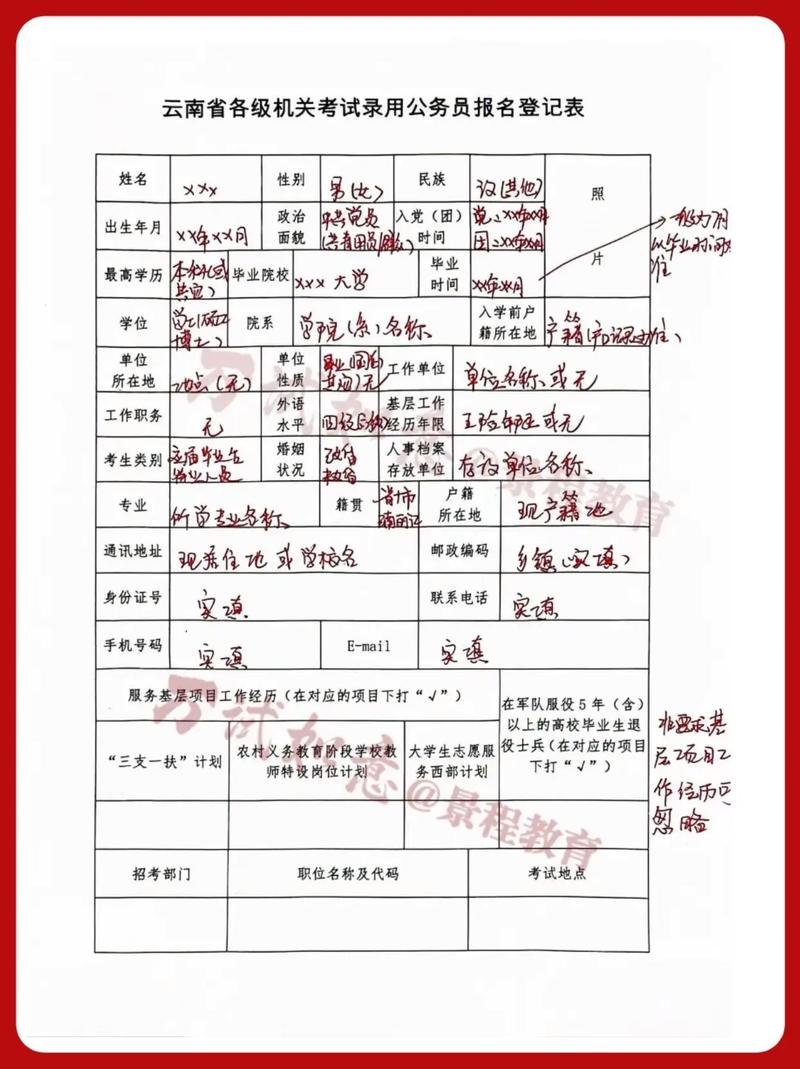 云南省各级机关考试录用公务员报名登记表
姓名 xxx 性别 男(女) 民族 汉(其他) 照片
出生年月 xx年xx月 政治面貌 中共党员(共青团员/群众) 入党（团）时间 党:xx年xx月 团:xx年xx月
一般为7月 以毕业时间为准
最高学历 本科(或其它) 毕业院校 xxx 大学 毕业时间 xx年xx月
学位 学士(硕士 博士) 院系 学院(系)名称 入学前户籍所在地 户籍
单位所在地 地点(无) 单位性质 无 工作单位 单位名称或无
工作职务 无 外语水平 四级 基层工作经历年限 或无
考生类别 应届毕业生 人员 婚姻状况 已婚 未婚 人事档案存放单位 存放单位名称
专业 所学专业名称 籍贯 省市 户籍所在地 现户籍地
通讯地址 现居住地 或 学校名 邮政编码 乡镇(实填)
身份证号 实填 联系电话 实填
手机号码 实填 E-mail 实填
服务基层项目工作经历（在对应的项目下打“√”） 在军队服役5年（含）以上的高校毕业生退役士兵（在对应的项目下打“√”）
“三支一扶”计划 农村义务教育阶段学校教师特设岗位计划 大学生志愿服务西部计划
非要求基
层项目工
作经历可
忽略
招考部门 职位名称及代码 考试地点
万试如意@景程教育
万试如意@景程教育